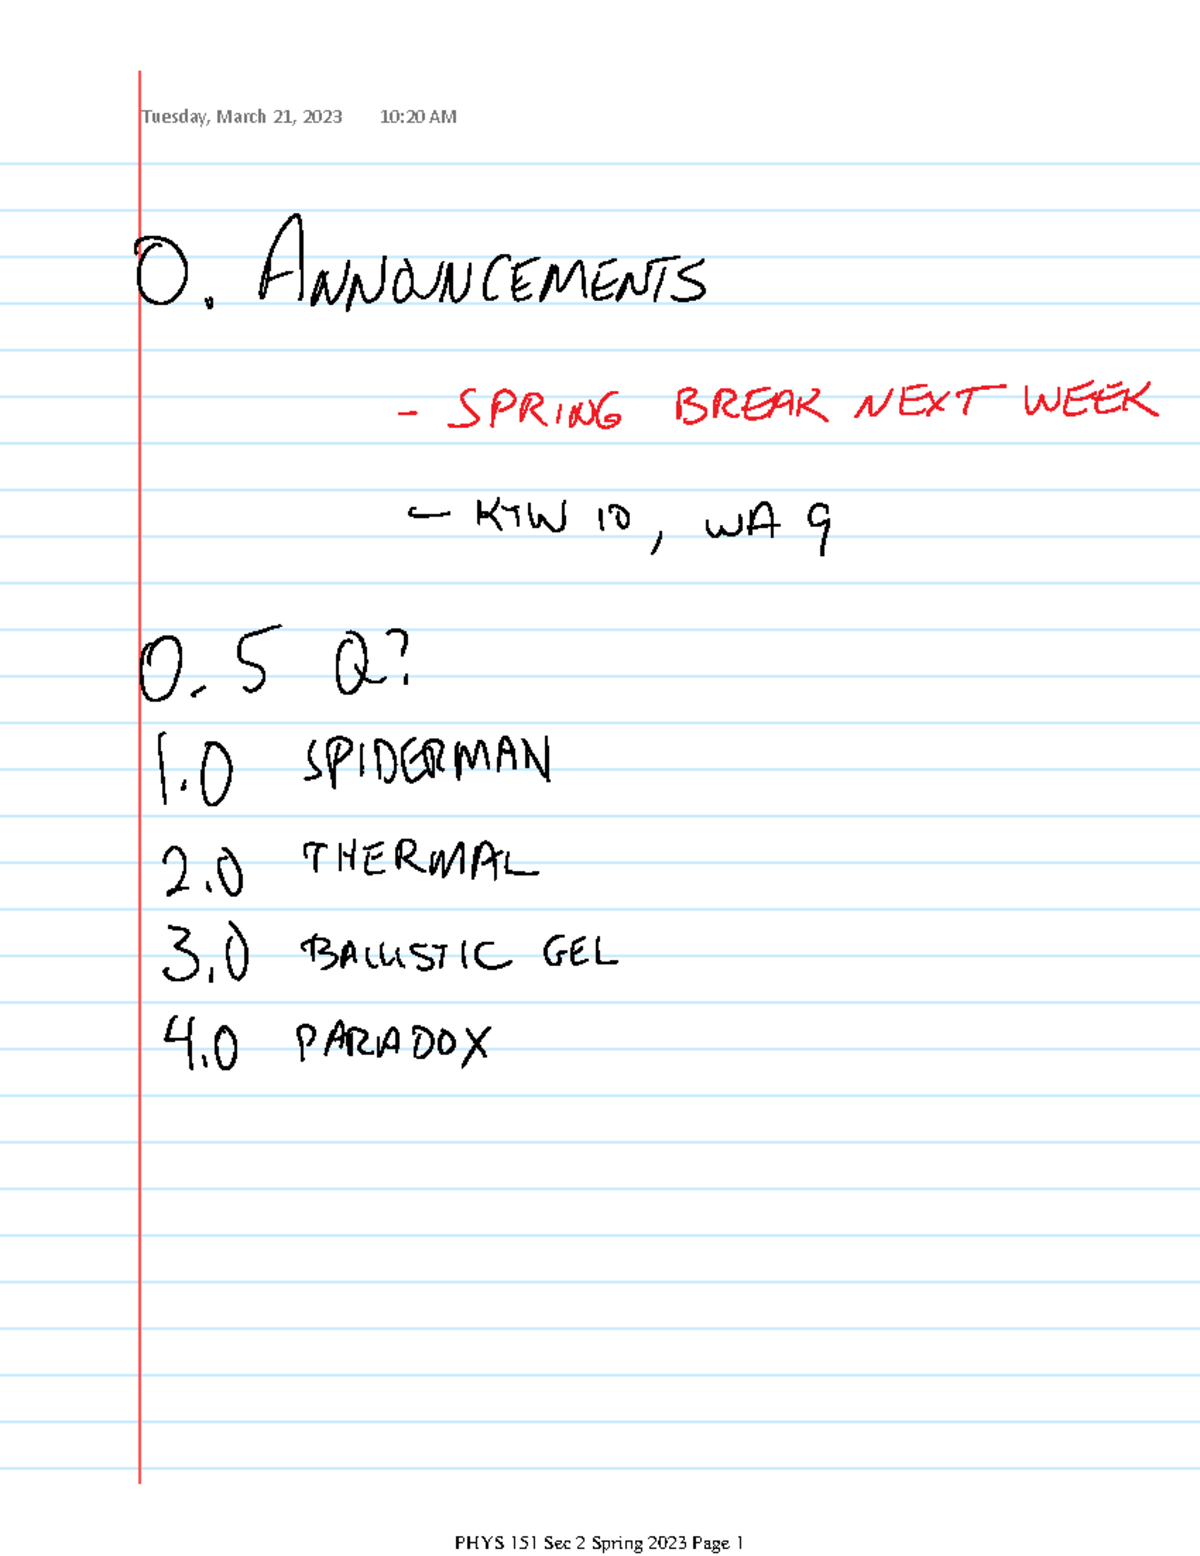 Tuesday, March 21, 2023 10:20 AM
0. ANNOUNCEMENTS
- SPRING BREAK NEXT WEEK
- KTW 10, WA 9
0.5 Q?
1.0 SPIDERMAN
2.0 THERMAL
3.0 BALLISTIC GEL
4.0 PARADOX
PHYS 151 Sec 2 Spring 2023 Page 1